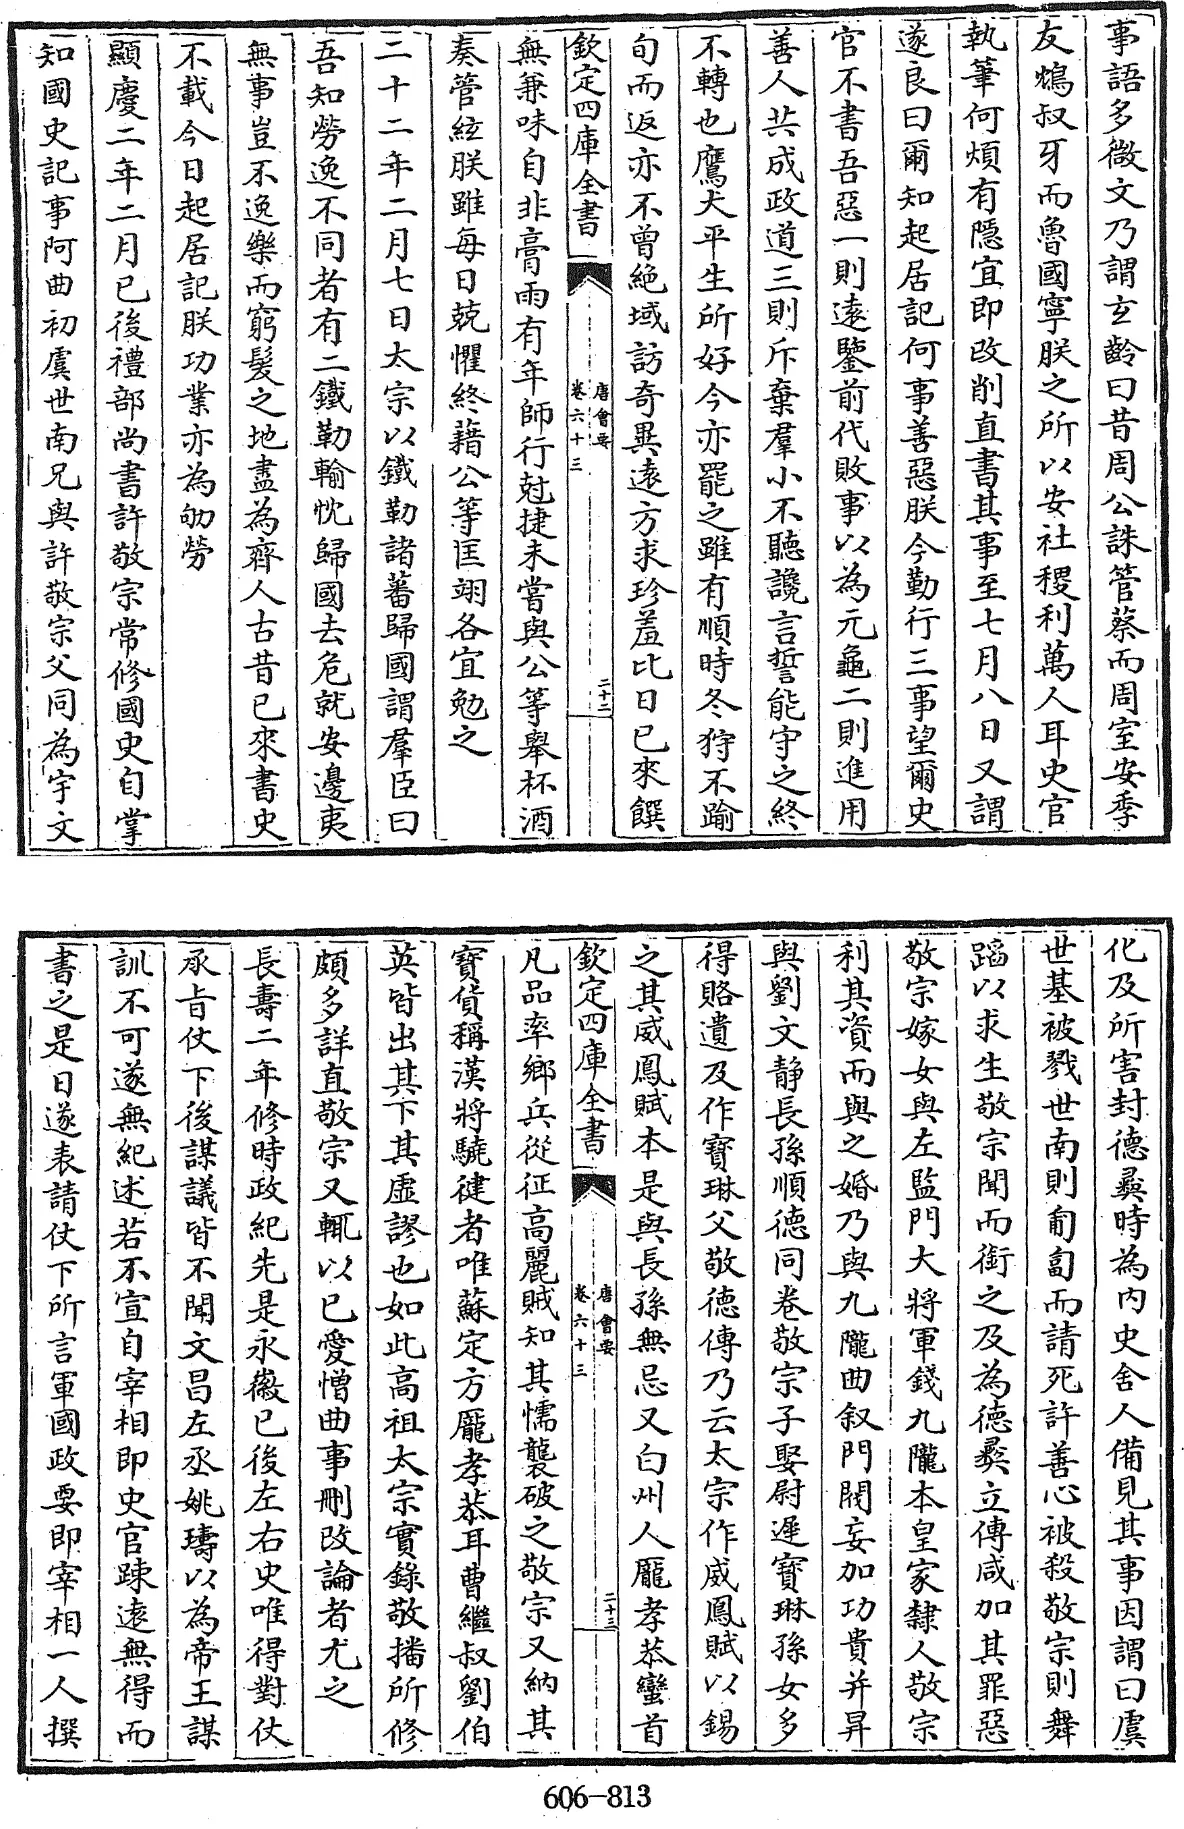 事語多微文乃謂玄齡曰昔周公誅管蔡而周室安季
友鴆叔牙而魯國寧朕之所以安社稷利萬人耳史官
執筆何煩有隱宜即改削直書其事至七月八日又謂
遂良曰爾知起居記何事善惡朕今勤行三事望爾史
官不書吾惡一則逺鑒前代敗事以為元龜二則進用
善人共成政道三則斥棄羣小不聽讒言誓能守之終
不轉也鷹犬平生所好今亦罷之雖有順時冬狩不踰
旬而返亦不曾絶域訪奇異逺方求珍羞比日已來饌
欽定四庫全書
唐會要
卷六十三
二十二
無兼味自非膏雨有年師行尅捷未嘗與公等舉杯酒
奏管絃朕雖每日兢懼終藉公等匡翊各宜勉之
二十二年二月七日太宗以鐵勒諸蕃歸國謂羣臣曰
吾知勞逸不同者有二鐵勒輸忱歸國去危就安邊夷
無事豈不逸樂而窮髮之地盡為齊人古昔已來書史
不載今日起居記朕功業亦為劬勞
顯慶二年二月已後禮部尚書許敬宗常修國史自掌
知國史記事阿曲初虞世南兄與許敬宗父同為宇文
化及所害封德彞時為内史舍人備見其事因謂曰虞
世基被戮世南則匍匐而請死許善心被殺敬宗則舞
蹈以求生敬宗聞而銜之及為德彞立傳咸加其罪惡
敬宗嫁女與左監門大將軍錢九隴本皇家隸人敬宗
利其資而與之婚乃與九隴曲叙門閥妄加功貴并昇
與劉文静長孫順德同卷敬宗子娶尉遲寳琳孫女多
得賂遺及作寳琳父敬德傳乃云太宗作威鳳賦以錫
之其威鳳賦本是與長孫無忌又白州人龎孝恭蠻首
欽定四庫全書
唐會要
卷六十三
二十三
凡品率鄉兵從征高麗賊知其懦襲破之敬宗又納其
寳貨稱漢將驍健者唯蘇定方龎孝恭耳曹繼叔劉伯
英皆出其下其虚謬也如此高祖太宗實錄敬播所修
頗多詳直敬宗又輒以已愛憎曲事刪改論者尤之
長壽二年修時政紀先是永徽已後左右史唯得對仗
承㫖仗下後謀議皆不聞文昌左丞姚璹以為帝王謀
訓不可遂無紀述若不宣自宰相即史官踈逺無得而
書之是日遂表請仗下所言軍國政要即宰相一人撰
606-813